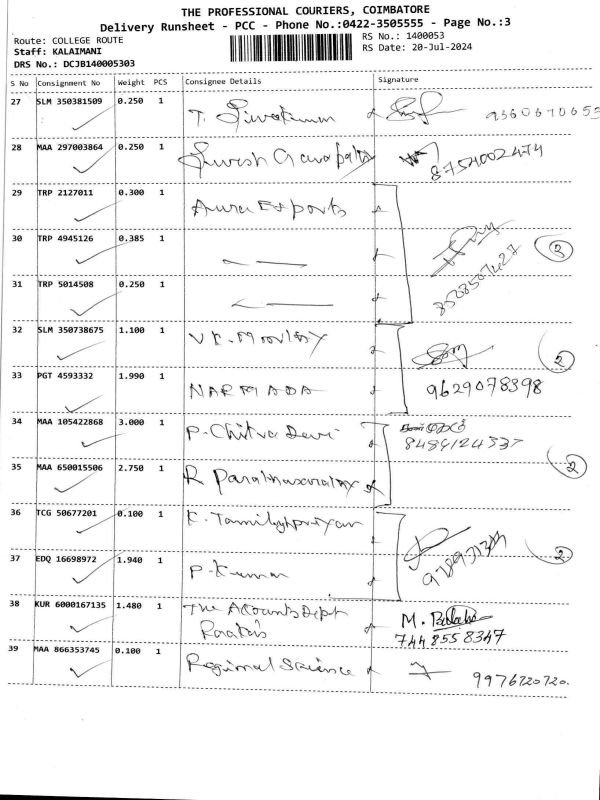 THE PROFESSIONAL COURIERS, COIMBATORE
Delivery Runsheet - PCC - Phone No.:0422-3505555 - Page No.:3
Route: COLLEGE ROUTE
RS No.: 1400053
Staff: KALAIMANI
RS Date: 20-Jul-2024
DRS No.: DCJB140005303
S No Consignment No Weight PCS Consignee Details Signature
27 SLM 350381509 0.250 1 T. Sivakumar
28 MAA 297003864 0.250 1 Suresh 8754002474
29 TRP 2127011 0.300 1 Aura Exports
30 TRP 4945126 0.385 1 3
31 TRP 5014508 0.250 1
32 SLM 350738675 1.100 1 2
33 PGT 4593332 1.990 1 NARMADA 9629078398
34 MAA 105422868 3.000 1 P. Chitra Devi
35 MAA 650015506 2.750 1 R 2
36 TCG 50677201 0.100 1 K.
37 EDQ 16698972 1.940 1 P. Kumar 2
38 KUR 6000167135 1.480 1 The Accounts Dept M.
7448558347
39 MAA 866353745 0.100 1 Regional Science
9976720720.